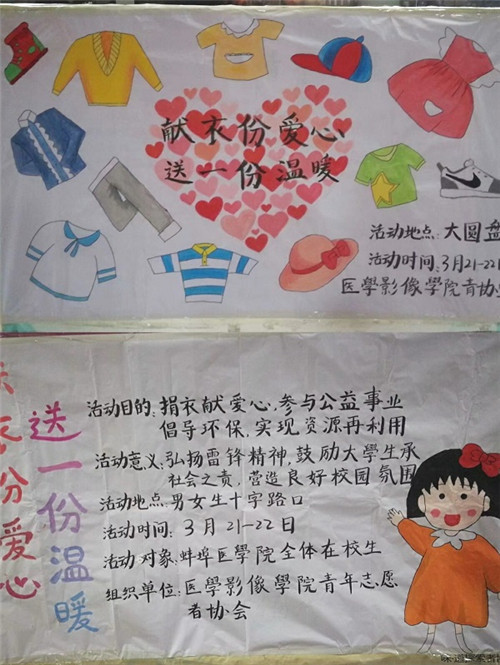 献衣份爱心
送一份温暖
活动地点:大圆盘
活动时间:3月21-22日
医學影像學院青协
衣份爱心
送一份温暖
活动目的:捐衣献爱心,参与公益事业
倡导环保,实现资源再利用
活动意义:弘扬雷锋精神,鼓励大學生承
社会之责,营造良好校园氛围
活动地点:男女生十字路口
活动时间:3月21-22日
活动对象:蚌埠医學院全体在校生
组织单位:医學影像學院青年志愿
者协会